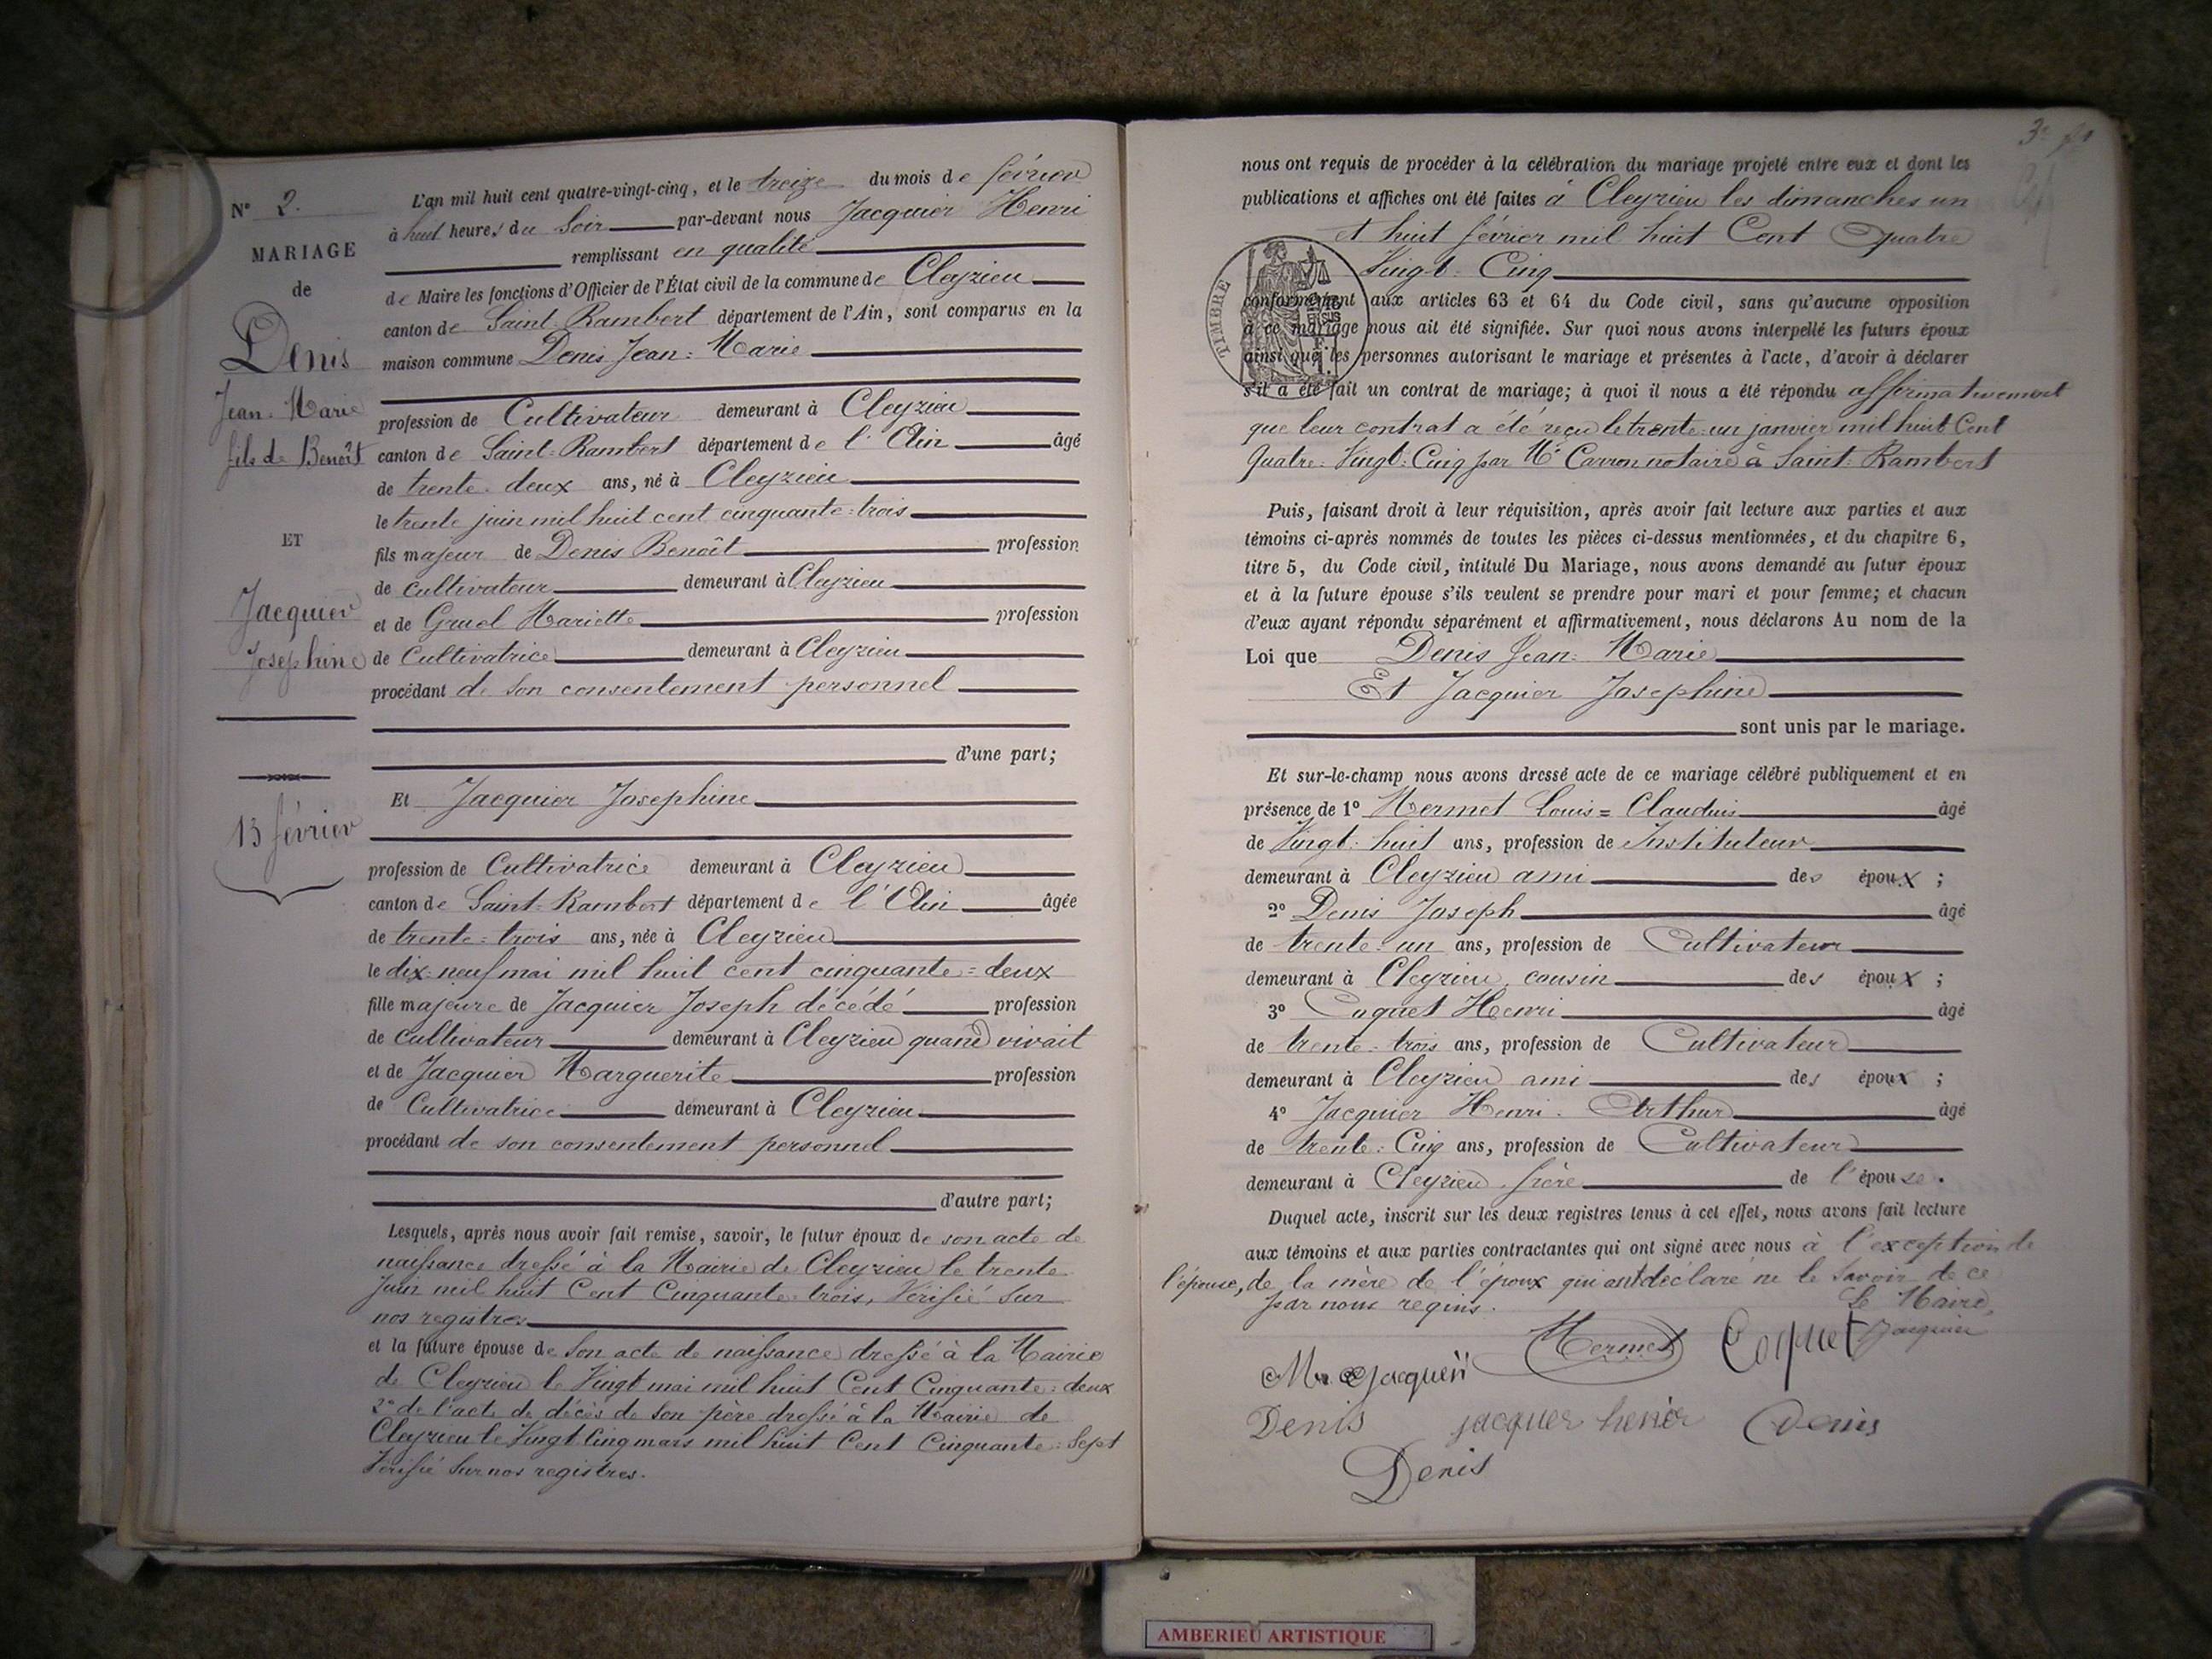 N° 2.
MARIAGE
de
Denis
Jean-Marie
fils de Benoît
ET
Jacquier
Josephine
13 février
L'an mil huit cent quatre-vingt-cinq, et le treize du mois de février
à huit heures du Soir par-devant nous Jacquier Henri
remplissant en qualité
de Maire les fonctions d'Officier de l'État civil de la commune de Cleyzieu
canton de Saint-Rambert département de l'Ain, sont comparus en la
maison commune Denis Jean-Marie
profession de Cultivateur demeurant à Cleyzieu
canton de Saint-Rambert département de l'Ain âgé
de trente-deux ans, né à Cleyzieu
le trente juin mil huit cent cinquante-trois
fils majeur de Denis Benoît profession
de cultivateur demeurant à Cleyzieu
et de Gruel Mariette profession
de Cultivatrice demeurant à Cleyzieu
procédant de son consentement personnel
d'une part;
Et Jacquier Josephine
profession de Cultivatrice demeurant à Cleyzieu
canton de Saint-Rambert département de l'Ain âgée
de trente-trois ans, née à Cleyzieu
le dix-neuf mai mil huit cent cinquante=deux
fille majeure de Jacquier Joseph décédé profession
de cultivateur demeurant à Cleyzieu quand vivait
et de Jacquier Marguerite profession
de Cultivatrice demeurant à Cleyzieu
procédant de son consentement personnel
d'autre part;
Lesquels, après nous avoir fait remise, savoir, le futur époux de son acte de
naissance dressé à la Mairie de Cleyzieu le trente
Juin mil huit Cent Cinquante-trois, Vérifié Sur
nos registres
et la future épouse de Son acte de naissance dressé à la Mairie
de Cleyzieu le Vingt mai mil huit Cent Cinquante-deux
2° de l'acte de décès de Son père dressé à la Mairie de
Cleyzieu le Vingt Cinq mars mil huit Cent Cinquante-Sept
Vérifié Sur nos registres.
nous ont requis de procéder à la célébration du mariage projeté entre eux et dont les
publications et affiches ont été faites à Cleyzieu les dimanches un
et huit février mil huit Cent Quatre
Vingt-Cinq
TIMBRE
conformément aux articles 63 et 64 du Code civil, sans qu'aucune opposition
à ce mariage nous ait été signifiée. Sur quoi nous avons interpellé les futurs époux
ainsi que les personnes autorisant le mariage et présentes à l'acte, d'avoir à déclarer
s'il a été fait un contrat de mariage; à quoi il nous a été répondu affirmativement
que leur contrat a été reçu le trente-un janvier mil huit Cent
Quatre-Vingt-Cinq par Me Carron notaire à Saint-Rambert
Puis, faisant droit à leur réquisition, après avoir fait lecture aux parties et aux
témoins ci-après nommés de toutes les pièces ci-dessus mentionnées, et du chapitre 6,
titre 5, du Code civil, intitulé Du Mariage, nous avons demandé au futur époux
et à la future épouse s'ils veulent se prendre pour mari et pour femme; et chacun
d'eux ayant répondu séparément et affirmativement, nous déclarons Au nom de la
Loi que Denis Jean-Marie
Et Jacquier Josephine
sont unis par le mariage.
Et sur-le-champ nous avons dressé acte de ce mariage célébré publiquement et en
présence de 1° Mermet Louis=Claudius âgé
de Vingt-huit ans, profession de Instituteur
demeurant à Cleyzieu ami des époux ;
2° Denis Joseph âgé
de trente-un ans, profession de Cultivateur
demeurant à Cleyzieu, cousin des époux ;
3° Coquet Henri âgé
de trente-trois ans, profession de Cultivateur
demeurant à Cleyzieu ami des époux ;
4° Jacquier Henri-Arthur âgé
de trente-Cinq ans, profession de Cultivateur
demeurant à Cleyzieu, frère de l'épouse.
Duquel acte, inscrit sur les deux registres tenus à cet effet, nous avons fait lecture
aux témoins et aux parties contractantes qui ont signé avec nous à l'exception de
l'épouse, de la mère de l'époux qui ont déclaré ne le Savoir de ce
par nous requis. Le Maire,
Mermet Coquet Jacquier
Denis jacquier henri Denis
Denis
AMBERIEU ARTISTIQUE